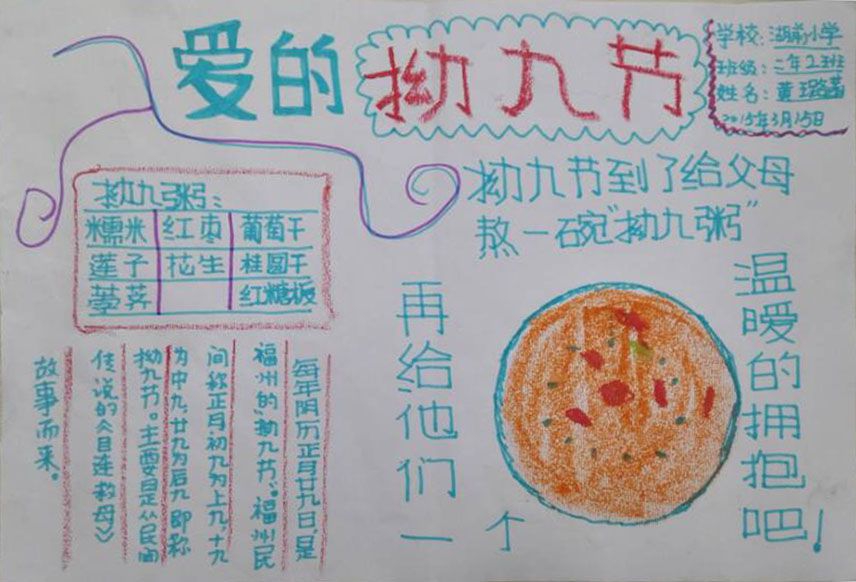 爱的拗九节
学校：湖前小学
班级：二年2班
姓名：黄
2015年3月15日
拗九节到了给父母
熬一碗"拗九粥"
拗九粥：
糯米 红枣 葡萄干
莲子 花生 桂圆干
荸荠 红糖板
再给他们一个
温暖的拥抱吧！
每年阴历正月廿九日，是
福州的"拗九节"。福州民
间称正月初九为上九，十九
为中九，廿九为后九即称
拗九节。主要是从民间
传说的《目连救母》
故事而来。